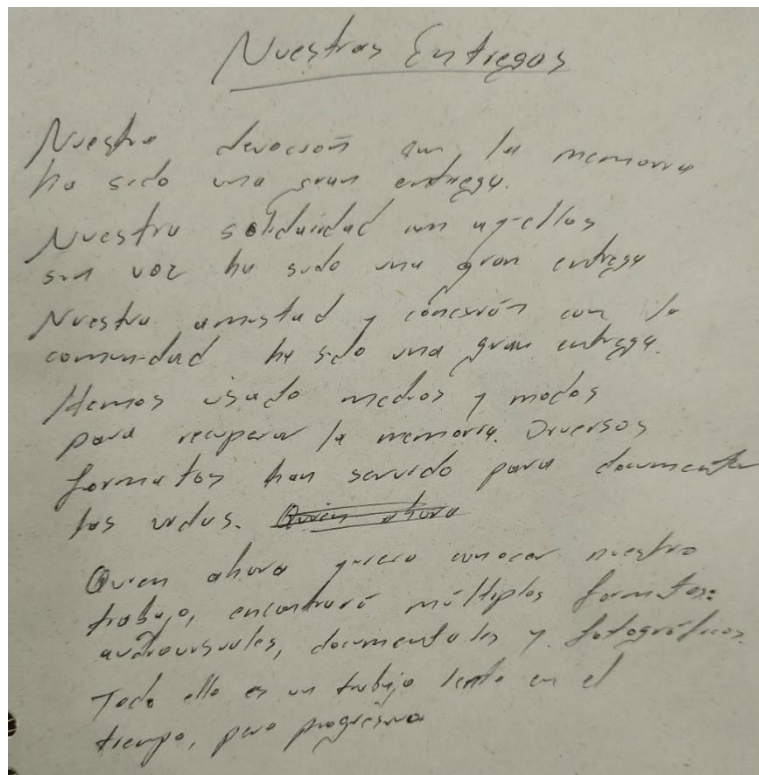 Nuestras Entregas
Nuestra devoción con la memoria
ha sido una gran entrega.
Nuestra solidaridad con aquellos
sin voz ha sido una gran entrega
Nuestra amistad y conexión con la
comunidad ha sido una gran entrega.
Hemos usado medios y modos
para recuperar la memoria. Diversos
formatos han servido para documentar
las vidas. Quien ahora
Quien ahora quiera conocer nuestro
trabajo, encontrará múltiples formatos:
audiovisuales, documentales y fotográficos.
Todo ello es un trabajo lento en el
tiempo, pero progresivo